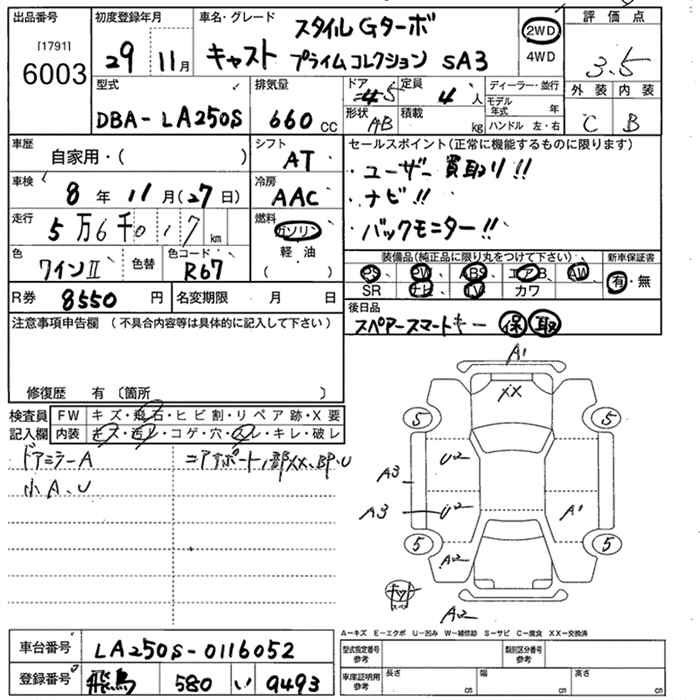 出品番号 初度登録年月 車名・グレード 評価点
[1791]
6003
29 11月
スタイル Gターボ
キャスト プライムコレクション SA3
2WD
4WD
3.5
外装 内装
C B
型式 排気量 ドア 定員 ディーラー・並行
DBA-LA250S 660 cc 5 4人
モデル年式 年
形状 積載
AB kg
ハンドル 左・右
車歴 シフト セールスポイント(正常に機能するものに限ります)
自家用・( )
AT
・ユーザー買取り!!
・ナビ!!
・バックモニター!!
車検 冷房
8年 11月(27日) AAC
走行 燃料
5万6千017km
ガソリン
軽・油
( )
色 色替 色コード
ワインII R67
装備品(純正品に限り丸をつけて下さい) 新車保証書
PS、 PW、 ABS、 エアB、 AW、
SR ナビ TV カワ
有・無
R券 8550円 名変期限 月 日
後日品
スペアースマートキー 保 取
注意事項申告欄 (不具合内容等は具体的に記入して下さい)
修復歴 有 (箇所 )
検査員 FW キズ・飛石・ヒビ割・リペア跡・X要
記入欄 内装 キズ・汚レ・コゲ・穴・スレ・キレ・破レ
ドアミラーA
小A、U
A1
XX
5 5
U2
A3
A3 U2 A1
5 5
A2
A2
A-キズ E-エクボ U-凹み W-補修跡 S-サビ C-腐食 XX-交換済
車台番号 LA250S-0116052
登録番号 飛鳥 580 い 9493
型式指定番号 参考 類別区分番号 参考
車庫証明用 参考 長さ cm 幅 cm 高さ cm